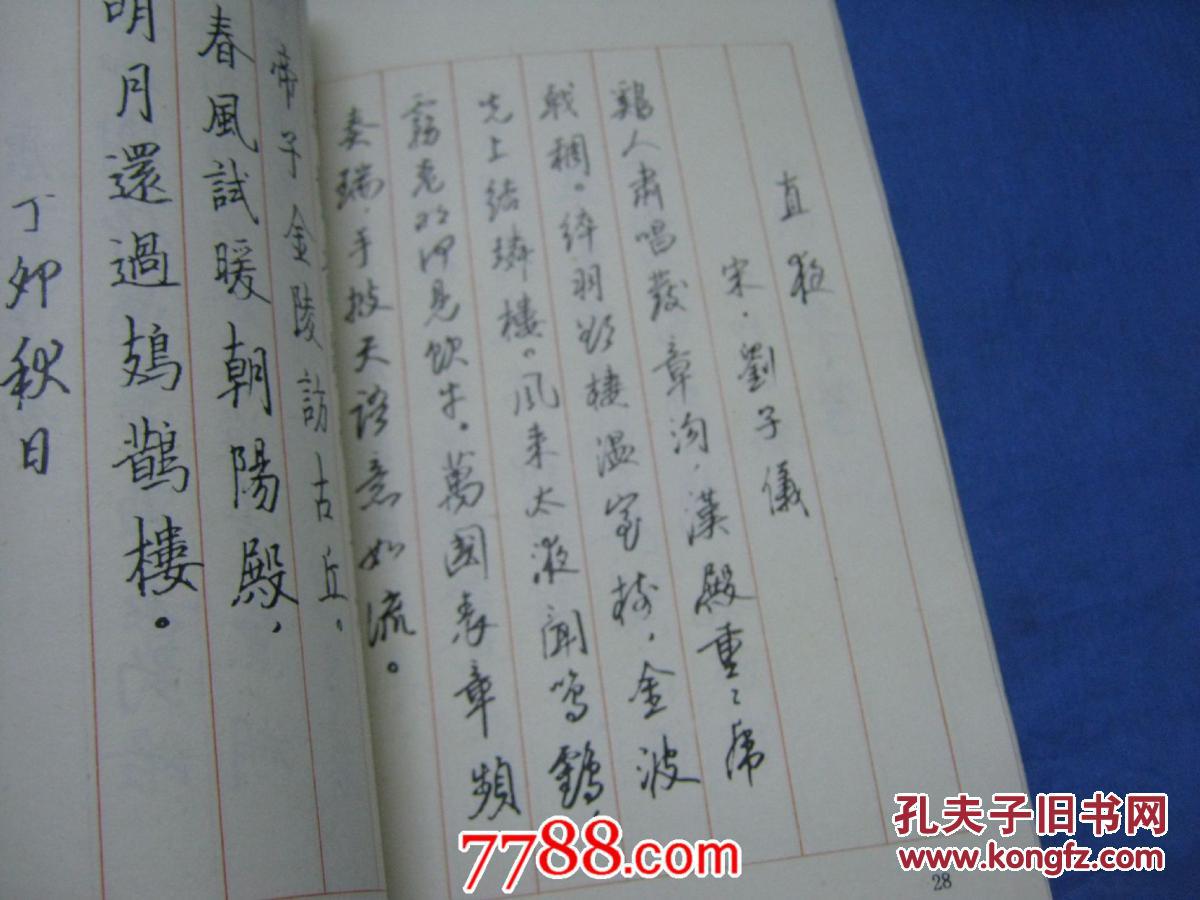 直夜
宋·劉子儀
雞人肅唱發章溝,漢殿重〻虎
戟稠。綷羽欲棲溫室樹,金波
先上結璘樓。風來太液聞鳴鶴,
霧 見飲牛。萬國表章頻
奏瑞,手披天語意如流。
帝子金陵訪古丘。
春風試暖朝陽殿,
明月還過鳷鵲樓。
丁卯秋日
28
7788.com
孔夫子旧书网
www.kongfz.com